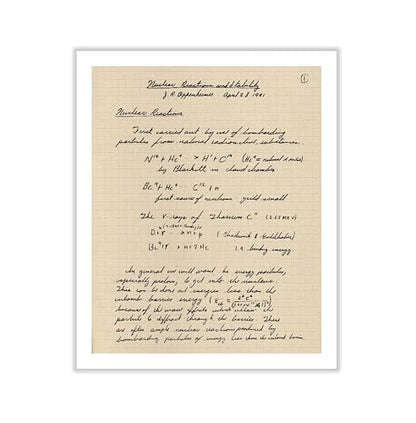 ①
Nuclear Reactions and Stability
J. R. Oppenheimer April 23 1941
Nuclear Reactions
First carried out by use of bombarding
particles from natural radioactive substances.
N¹⁴ + He⁴ → H¹ + O¹⁷ (He⁴ = natural α rays)
by Blackett in cloud chamber
Be⁹ + He⁴ → C¹² + n
first source of neutrons - yield small
The γ rays of Thorium C" (2.62 MeV)
D + γ → n + p (Chadwick & Goldhaber)
Be⁹ + γ → n + 2He binding energy
In general we will want to energy particles,
especially protons, to get into the nucleus
This can be done at energies less than the
coulomb barrier energy
because of the wave effects which allow the
particle to diffract through the barrier. There
are often ample nuclear reactions produced by
bombarding particles of energy less than the coulomb barrier.